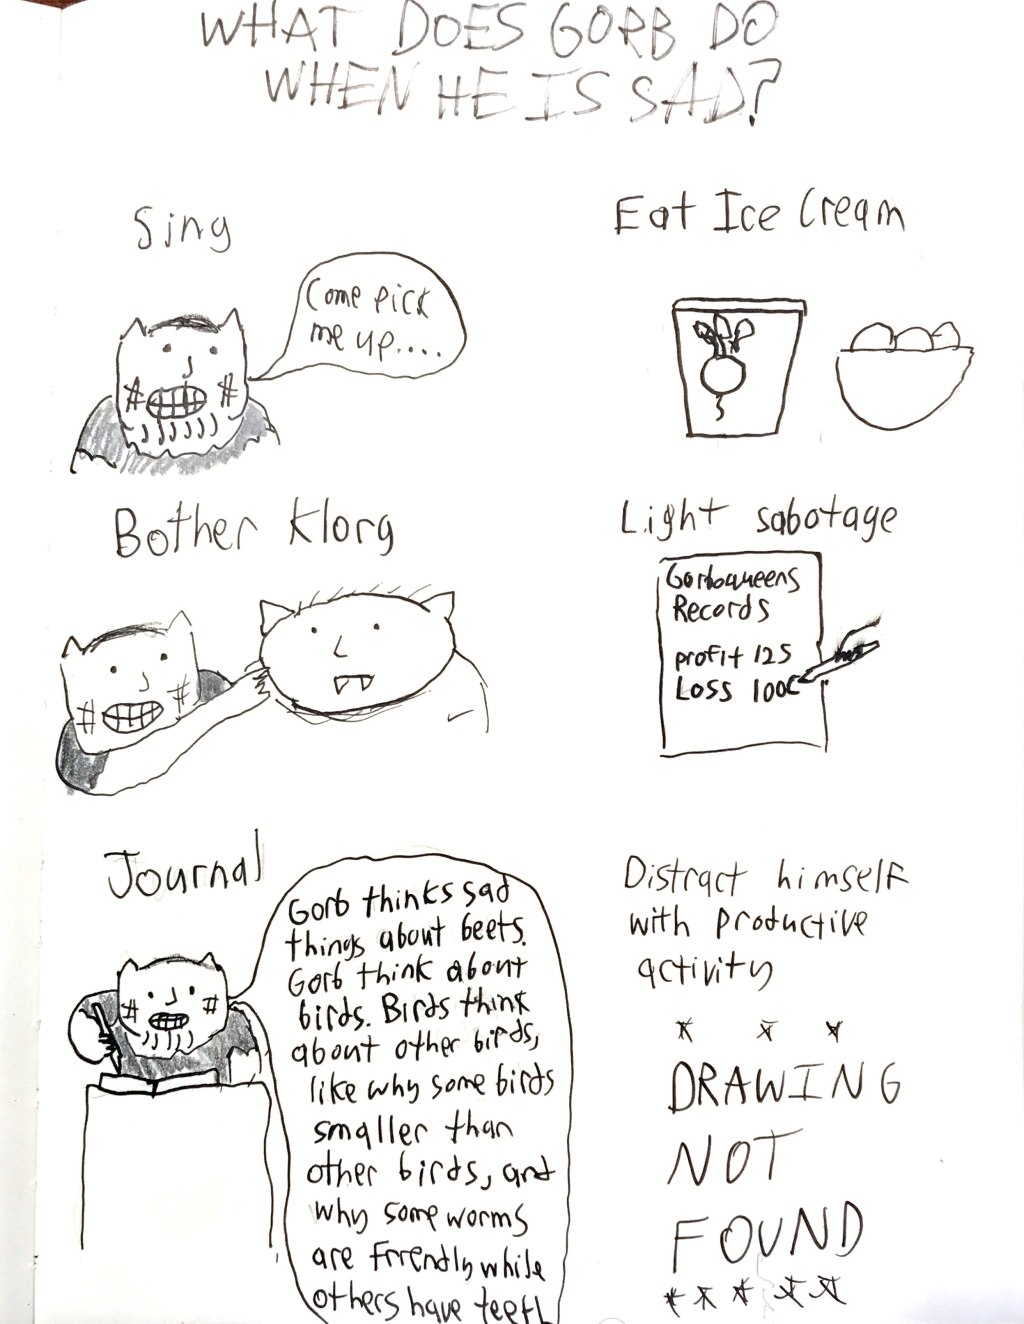 WHAT DOES GORB DO
WHEN HE IS SAD?
Sing
Come pick
me up....
Eat Ice Cream
Bother Klorg
Light sabotage
Gorboqueens
Records
profit 125
Loss 1000
Journal
Gorb thinks sad
things about beets.
Gorb think about
birds. Birds think
about other birds,
like why some birds
smaller than
other birds, and
why some worms
are friendly while
others have teeth
Distract himself
with productive
activity
* * *
DRAWING
NOT
FOUND
* * * * *